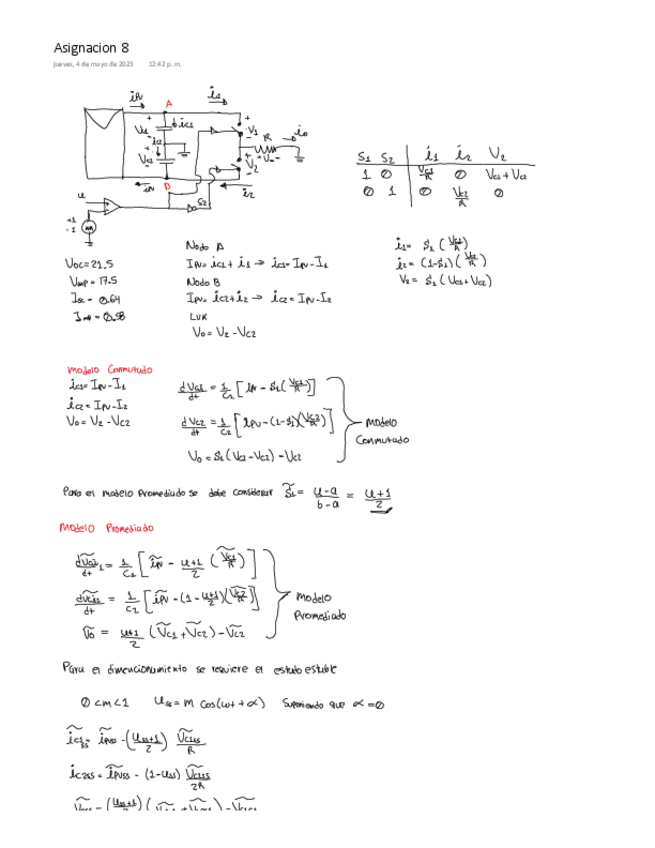 Asignacion 8
jueves, 4 de mayo de 2023 12:42 p. m.
iPV
is
A
+
ic1
+
V1
R
io
+
V2
B
iPV
i2
S2
u
+1
-1
S1 S2 i1 i2 V2
1 0 Vc1/R 0 Vc1 + Vc2
0 1 0 Vc2/R 0
i1= S1 (Vc1/R)
i2= (1-S1)(Vc2/R)
V2= S1 (Vc1+Vc2)
Voc=21.5
Vmp = 17.5
Isc = 0.64
Imp = 0.58
Nodo A
IPV= ic1 + i1 → ic1= IPV-I1
Nodo B
IPV= ic2+i2 → ic2 = IPV-I2
LVK
Vo= V2 -Vc2
Modelo Conmutado
ic1= IPV-I1
ic2 = IPV-I2
Vo= V2 -Vc2
dVc1/dt = 1/C1 [iPV - S1(Vc1/R)]
dVc2/dt = 1/C2 [iPV-(1-S1)(Vc2/R)]
Vo = S1 (Vc1-Vc2) -Vc2
Modelo
Conmutado
Para el modelo Promediado se debe considerar S̃1= u-a/b-a = u+1/2
Modelo Promediado
1/C1 [ĩPV - u+1/2 (Ṽc1/R)]
1/C2 [ĩPV-(1-u+1/2)(Ṽc2/R)]
Ṽo = u+1/2 (Ṽc1+Ṽc2)-Ṽc2
Modelo
Promediado
Para el dimencionamiento se requiere el estado estable
0<m<1 uss= m Cos(ωt+α) Suponiendo que α=0
ĩc1ss= ĩPVss -(uss+1/2) Ṽc1ss/R
ic2ss = ĩPVss - (1-uss) Ṽc2ss/2R